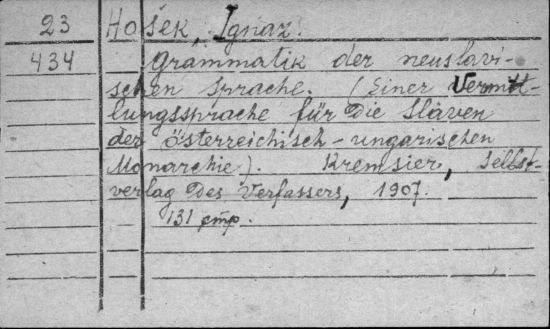 23 Hošek, Ignaz.
434 Grammatik der neuslavi-
schen Sprache. (Einer Vermitt-
lungssprache für die Slaven
der österreichisch-ungarischen
Monarchie). Kremsier, Selbst-
verlag des Verfassers, 1907.
131 стр.